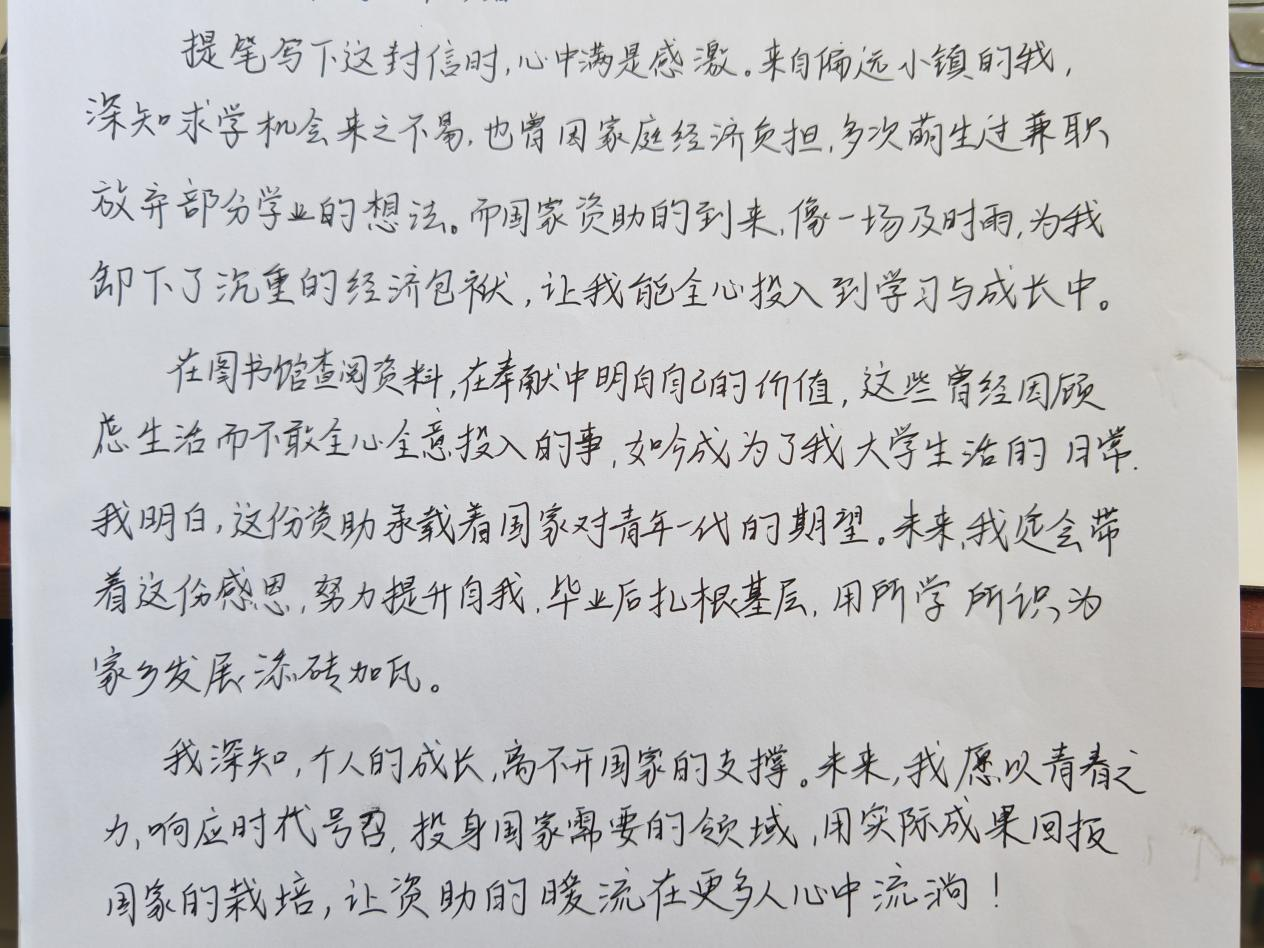 提笔写下这封信时,心中满是感激。来自偏远小镇的我,
深知求学机会来之不易,也曾因家庭经济负担,多次萌生过兼职
放弃部分学业的想法。而国家资助的到来,像一场及时雨,为我
卸下了沉重的经济包袱,让我能全心投入到学习与成长中。
在图书馆查阅资料,在奉献中明白自己的价值,这些曾经因顾
虑生活而不敢全心全意投入的事,如今成为了我大学生活的日常.
我明白,这份资助承载着国家对青年一代的期望。未来,我定会带
着这份感恩,努力提升自我,毕业后扎根基层,用所学所识为
家乡发展添砖加瓦。
我深知,个人的成长,离不开国家的支撑。未来,我愿以青春之
力,响应时代号召,投身国家需要的领域,用实际成果回报
国家的栽培,让资助的暖流在更多人心中流淌!